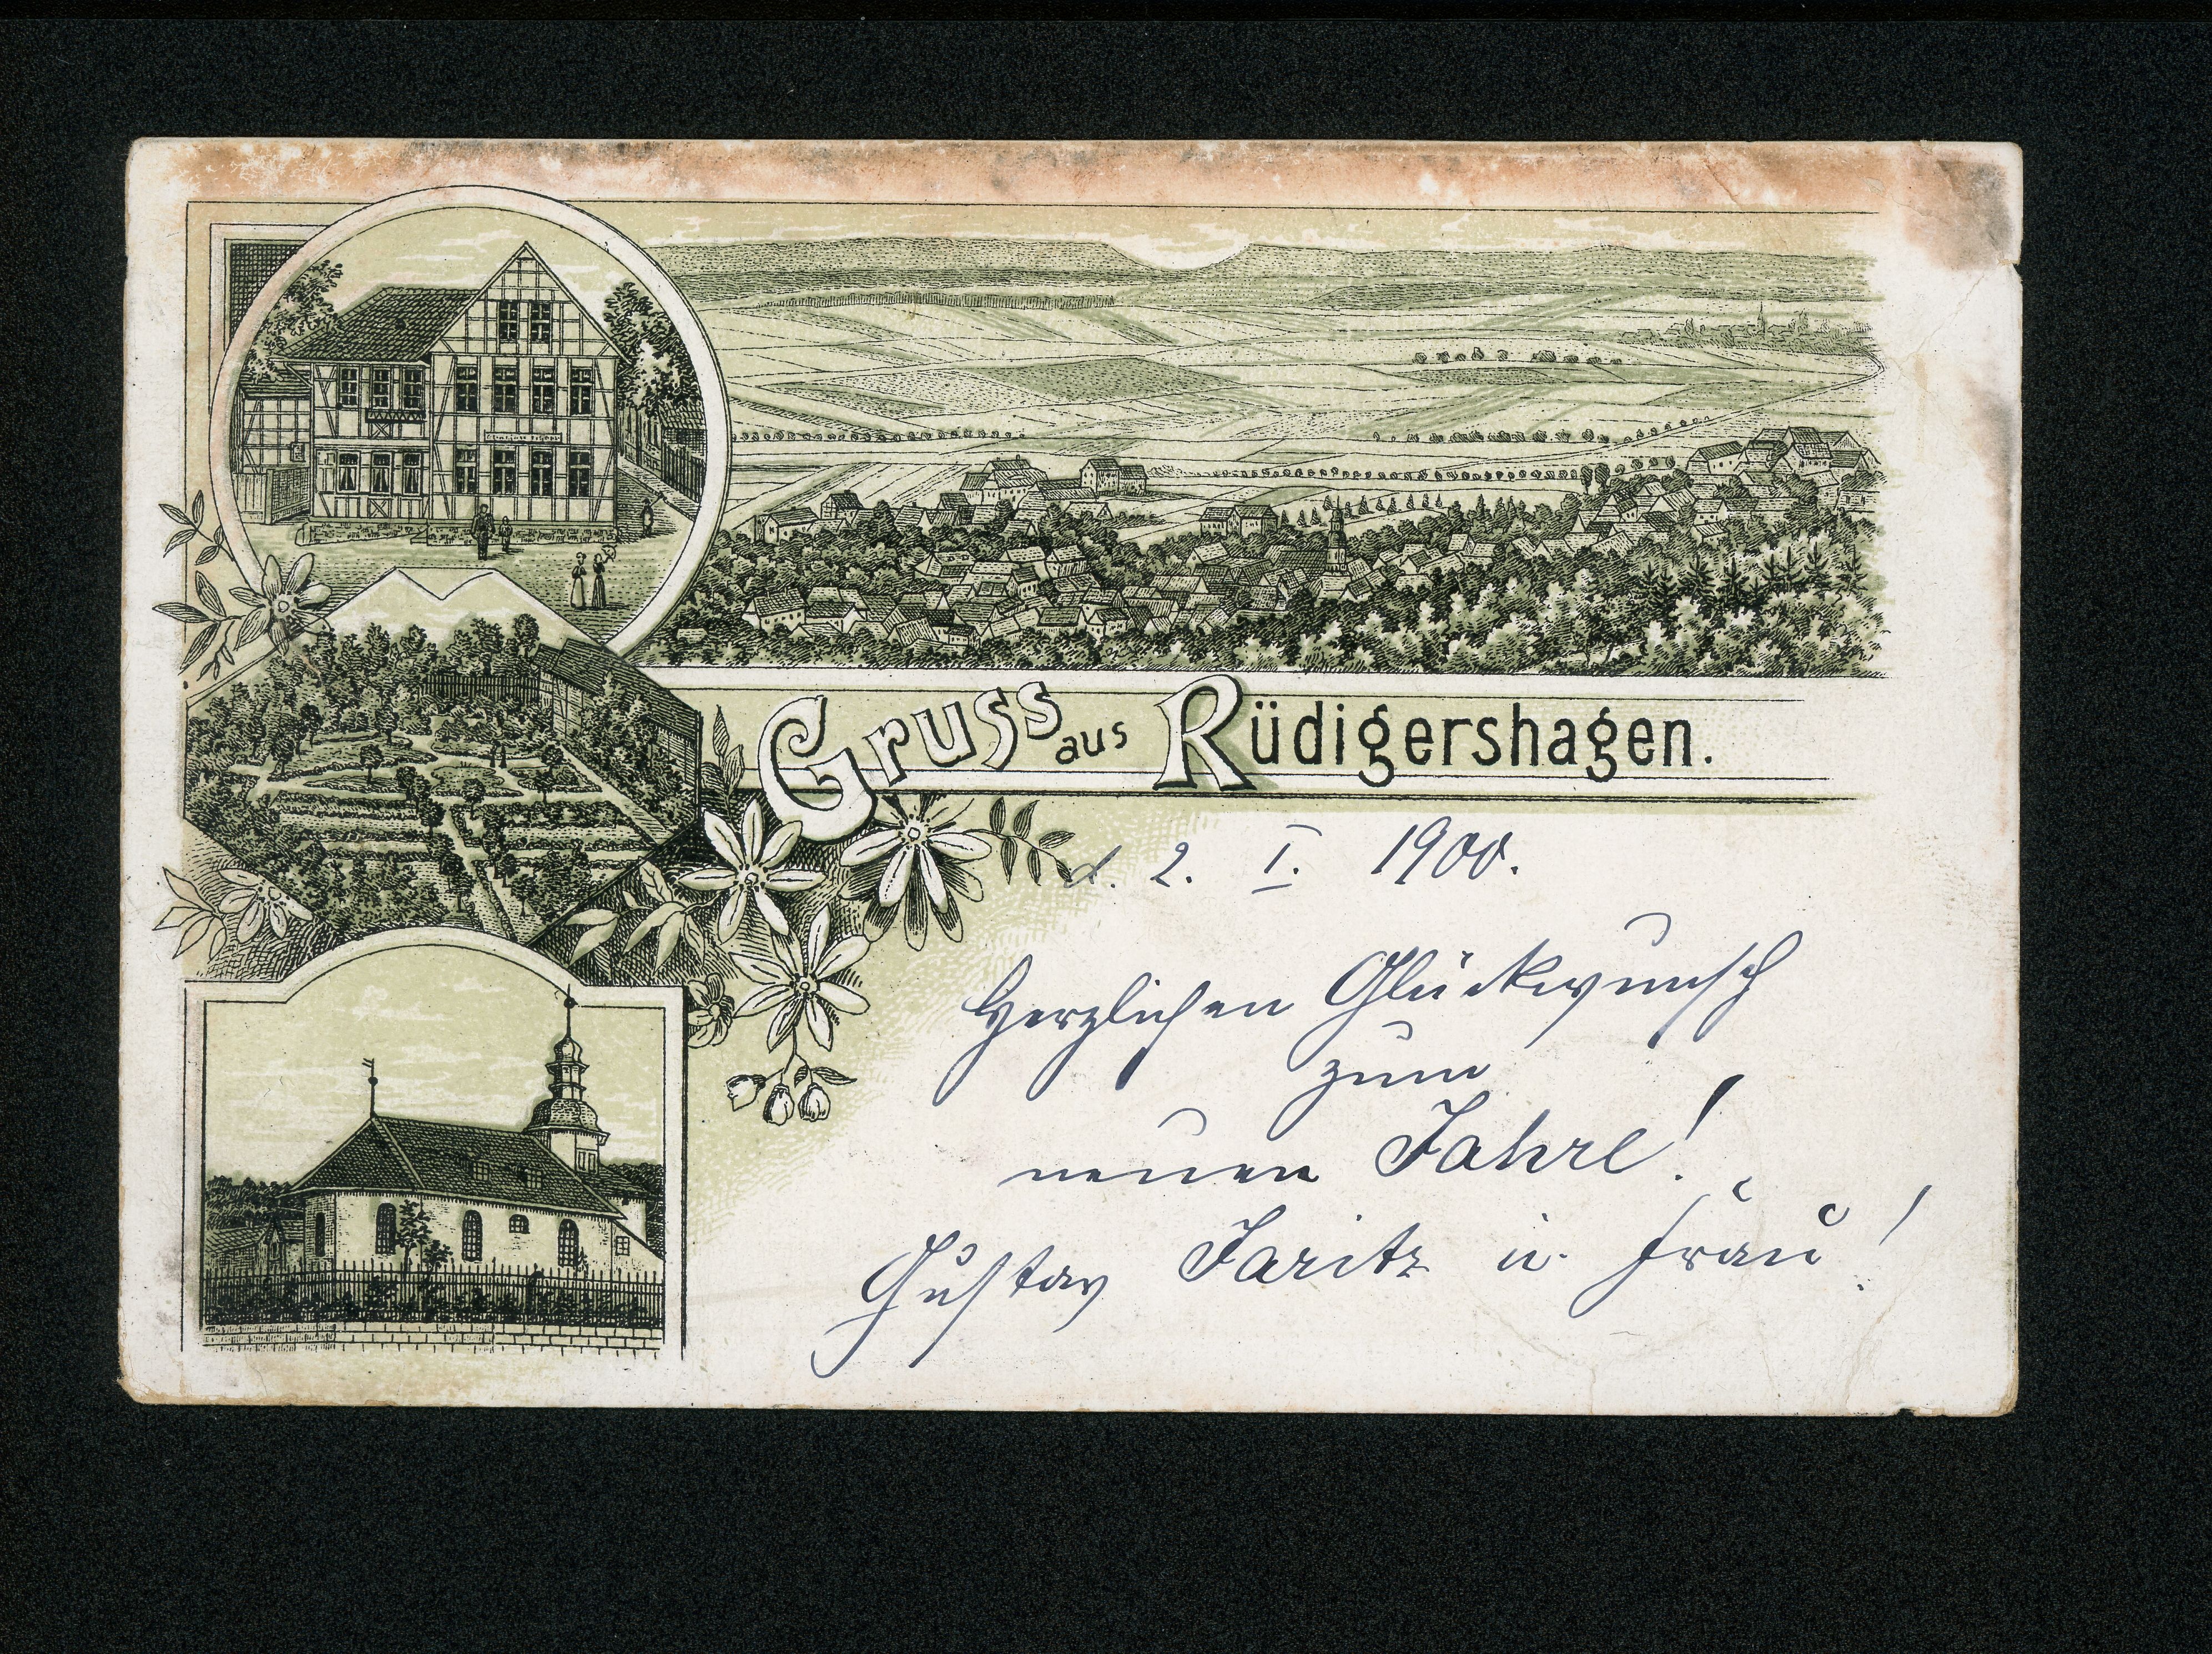 Gruss aus Rüdigershagen.
d. 2. I. 1900.
Herzlichen Glückwunsch
zum
neuen Jahre!
Gustav Jaritz u. Frau!